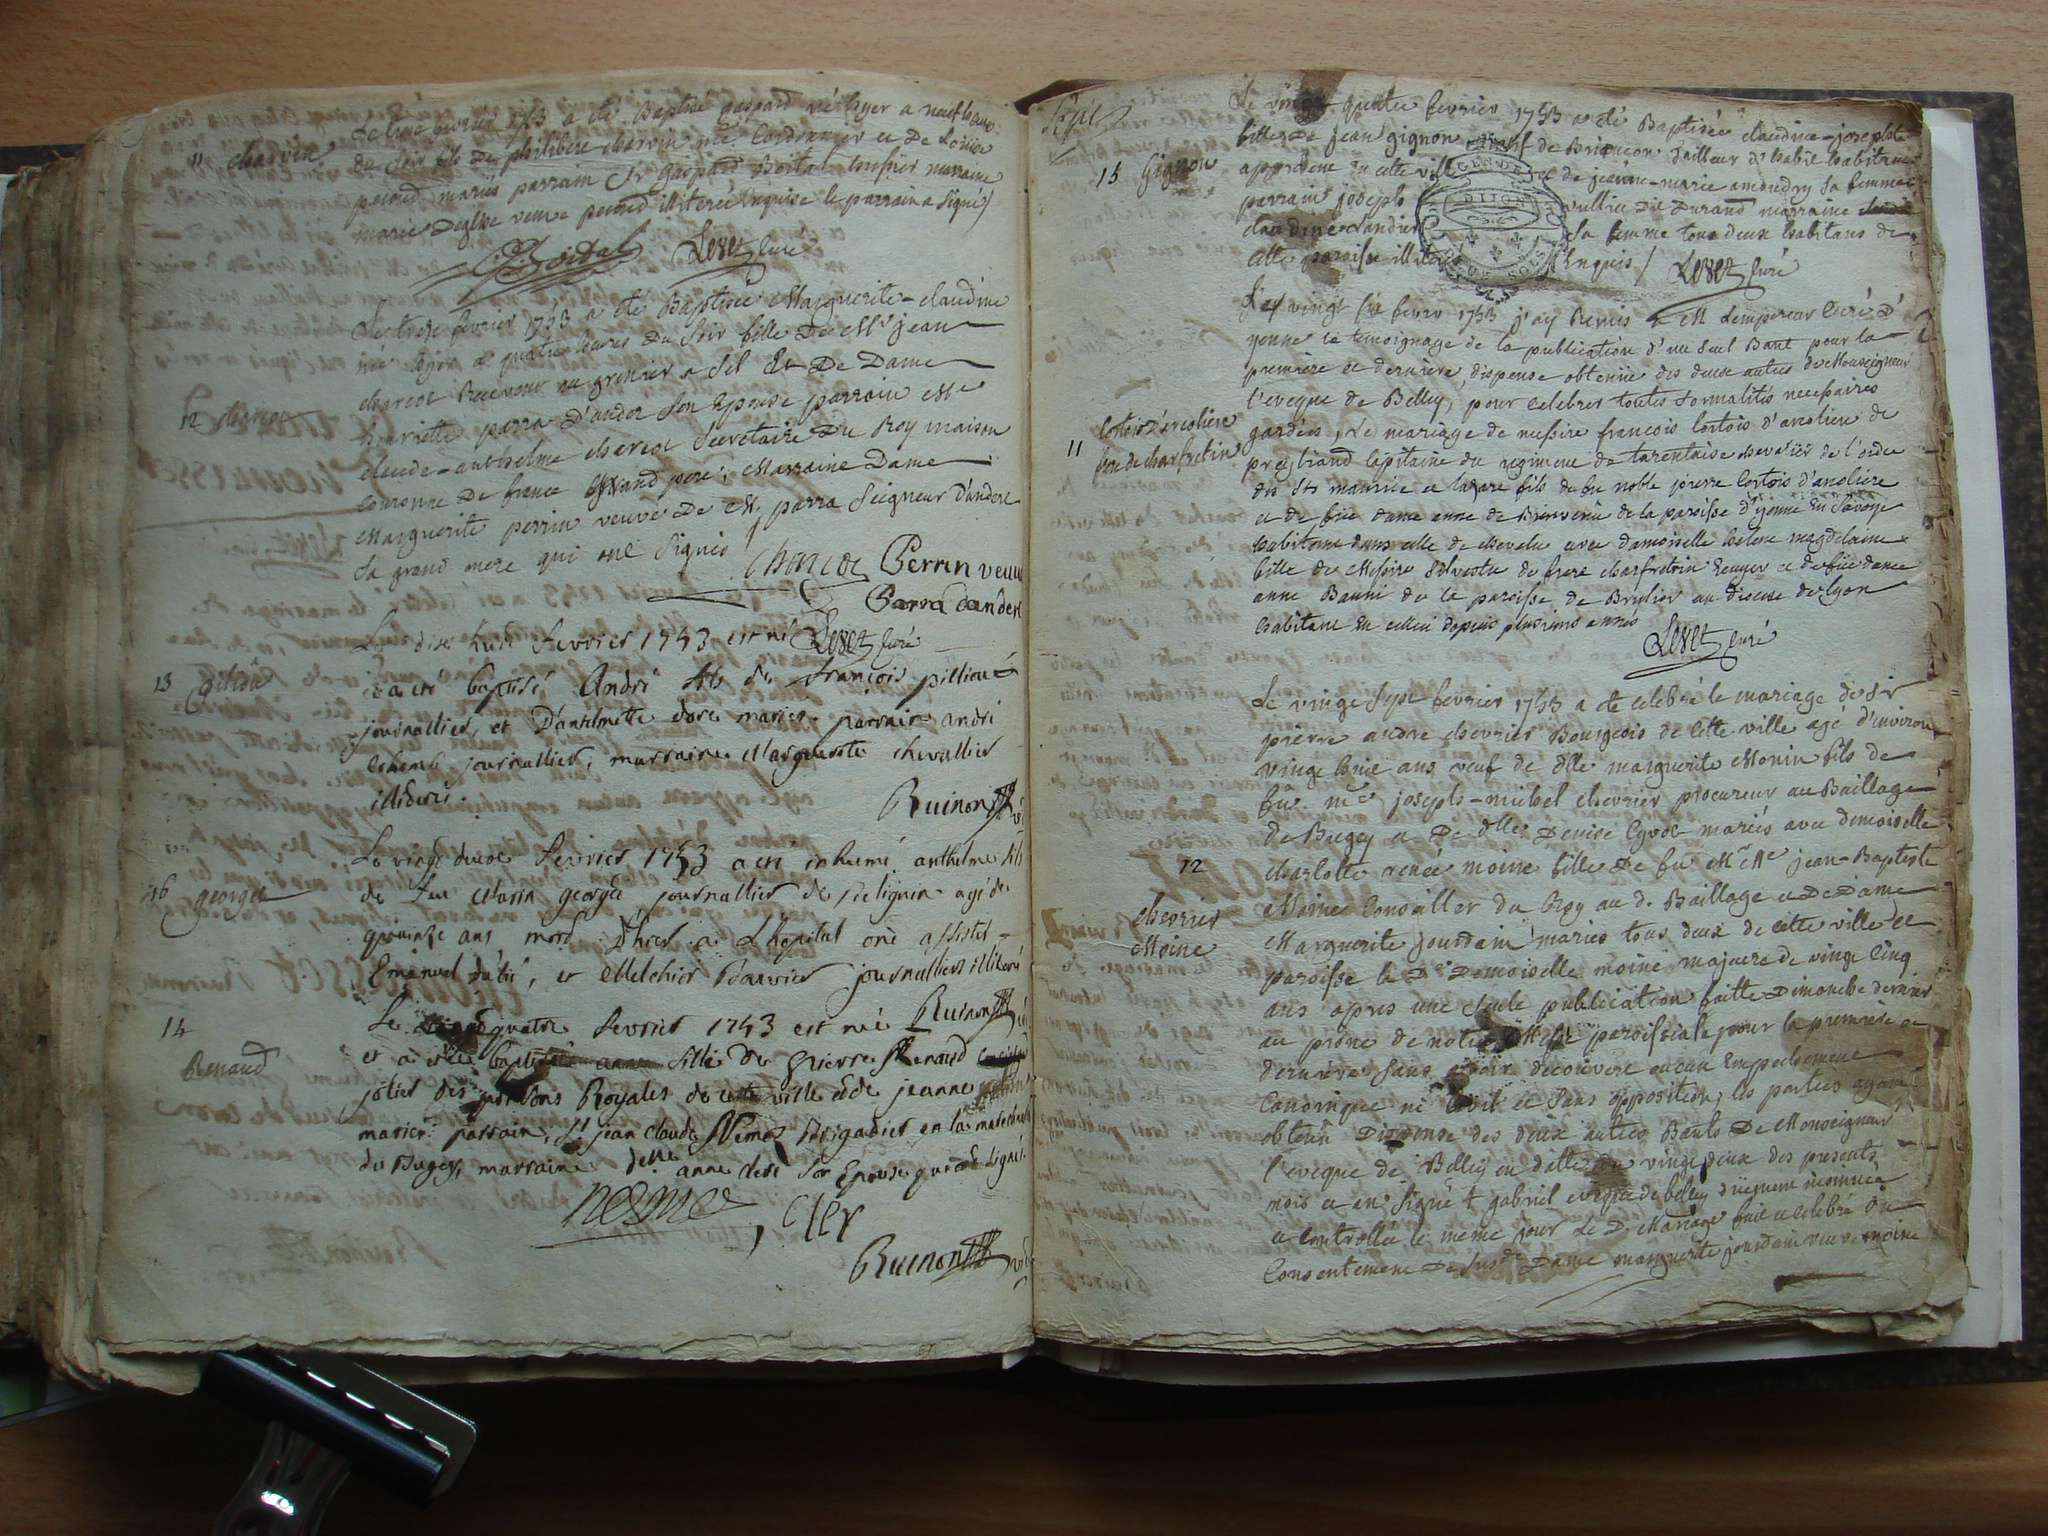 11 charvin
Le treze fevrier 1753 a été Baptisé gaspard né hyer a neuf heures
du soir fils de philibert charvin me. Cordonnier et De Louise
peured mariés parrain Sr gaspard Boital marraine
marie veuve peured illiterée enquise le parrain a signé
Boital Levet Curé
12 charcot
Le treze fevrier 1753 a été Baptisée Marguerite-claudine
née hyer a quatre heures Du soir fille De Mr jean
charcot Receveur au grenier a sel Et De Dame
henriette parra D'andor son Epouse parrain
claude-anthelme charcot secretaire Du Roy maison
couronne De france grand pere, Marraine Dame
Marguerite perrin veuve De M. parra seigneur d'andor
sa grand mere qui ont signés Charcot Perrin veuve
Parra dandor
Levet Curé
13
Le dix huit fevrier 1753 est né
et a été baptisé André fils de François pilliou
journallier, et D'antelmette mariés. parrain andré
journallier, marraine Marguerite chevallier
illiterés.
Ruinon vic
16 george
Le vingt deux fevrier 1753 a été inhumé anthelme fils
de feu Marin george, journallier de agé de
quinze ans mort D'hier a L'hopital ont assistés
Emanuel, et Melchior journalliers illiterés
Ruinon
14 Renaud
Le vingt quatre fevrier 1753 est née
et a été baptisée anne fille de pierre Renaud
jolier des prisons Royales de cette ville et de jeanne
mariés. parrain, Sr jean Claude Nemoz Brigadier en la marechaussée
du Bugey, marraine delle anne clerc son Epouse qui ont signés.
nemoz, Cler
Ruinon vic
15 Gignon
Le vingt-quatre fevrier 1753 a été Baptisée claudine-josephte
fille De jean gignon natif de Briançon tailleur d'habit habitant
apresent en cette ville et de jeanne-marie amoudry sa femme
parrain joseph vullin dit Durand marraine
claudine sa femme tous deux habitans de
cette paroisse illiterés Enquis / Levet Curé
GEN. DE
DIJON
11 Cortois d'arcoliere
frere de charfretin
Le vingt six fevrier 1753 j'ay Remis a M Lempereur Curé d'
yenne le temoignage de la publication d'un seul Bant pour la
premiere et derniere, dispense obtenüe des deux autres de Monseigneur
l'eveque de Belley, pour celebrer toutes formalités necessaires
gardées, Le mariage de messire françois Cortois d'arcoliere de
Capitaine du regiment de tarentaise chevalier de l'ordre
des Sts maurice et lazare fils de fu noble pierre Cortois d'arcoliere
et de füe dame anne de Bienvenu de la paroisse d'yenne En Savoye
habitant dans celle de chevelu avec damoiselle helene magdelaine
fille de Messire Silvestre de frere charfretin Ecuyer et de füe dame
anne de la paroisse de Brulier au diocese de lyon
habitant En celleci depuis plusieurs années
Levet Curé
12
chevrier
Moine
Le vingt sept fevrier 1753 a été celebré le mariage de Sr
pierre andre chevrier Bourgeois de cette ville agé d'environ
vingt huit ans veuf de dlle marguerite Monin fils de
fu me joseph-michel chevrier procureur au Baillage
de Bugey et De dlle Denise Cyvoct mariés avec demoiselle
charlotte renée moine fille De fu Mr Me jean-Baptiste
Moine Conseiller du Roy au d. Baillage et De Dame
Marguerite jourdain mariés tous deux de cette ville et
paroisse la De Demoiselle moine majeure de vingt Cinq
ans apres une seule publication faitte Dimanche dernier
au prone de notre Messe paroissiale pour la premiere et
derniere sans avoir decouvert aucun Empechement
Canonique ni Civil et sans opposition, les parties ayant
obtenu Dispense des deux autres Bants De Monseigneur
l'eveque de Belley en datte du vingt deux des presents
mois et an signé † gabriel eveque de belley düement insinuée
et controllée le meme jour Le D. Mariage fait et celebré Du
Consentement De susd. Dame marguerite jourdain veuve moine